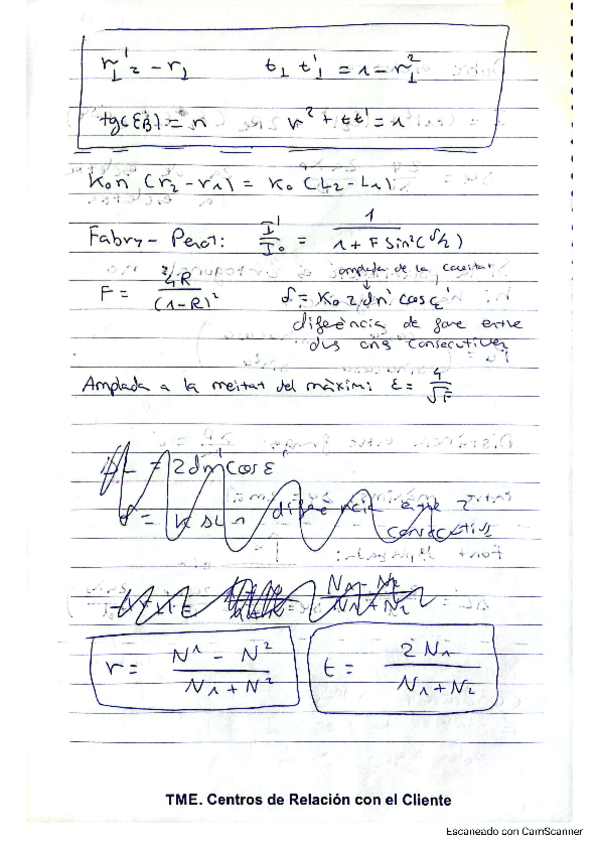 r'⊥ = -r⊥    t⊥ t'⊥ = 1 - r⊥²
tg(εB) = n    r² + tt' = 1
K₀n (r₂ - r₁) = K₀ (L₂ - L₁)
Fabry-Perot: I/I₀ = 1 / (1 + F sin²(δ/2))
amplada de la cavitat
F = 4R / (1-R)²    δ = K₀ 2dn' cos ε'
diferència de fase entre
dus ons consecutives
Amplada a la meitat del màxim: ε = 4/√F
ΔL = 2dn' cos ε'
diferència entre 2
consecutives
N₁ - N₂ / N₁ + N₂
r = N₁ - N₂ / N₁ + N₂    t = 2N₁ / N₁ + N₂
TME. Centros de Relación con el Cliente
Escaneado con CamScanner